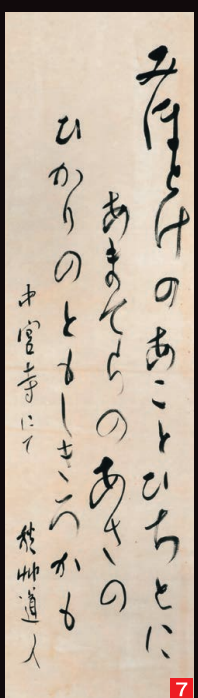 みほとけのあことひちとに
あまてらのあさの
ひかりのともしきろかも
中宮寺にて
秋艸道人
7